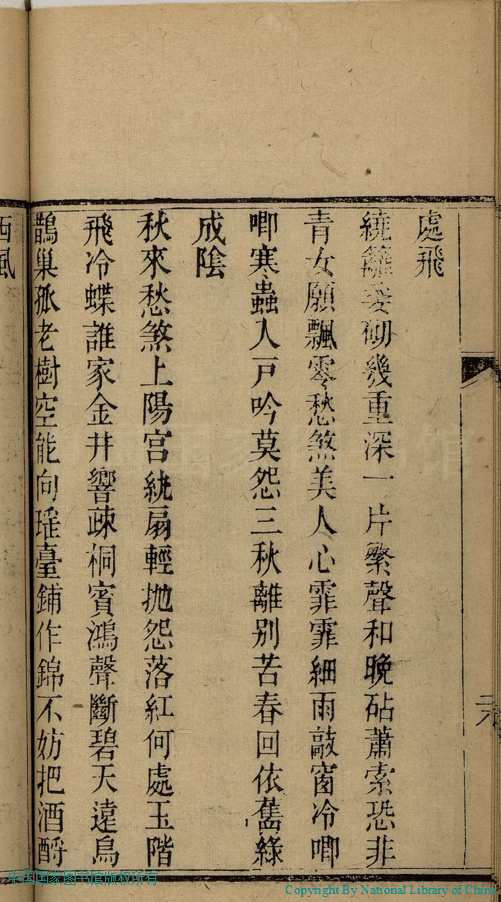 處飛
繞籬委砌幾重深一片繁聲和晚砧蕭索恐非
青女願飄零愁煞美人心霏霏細雨敲窗冷唧
唧寒蟲入戸吟莫怨三秋離別苦春回依舊綠
成陰
秋來愁煞上陽宮紈扇輕抛怨落紅何處玉階
飛冷蝶誰家金井響疎桐賓鴻聲斷碧天遠烏
鵲巢孤老樹空能向瑶臺鋪作錦不妨把酒酹
西風
中国国家图书馆版权所有
Copyright By National Library of China